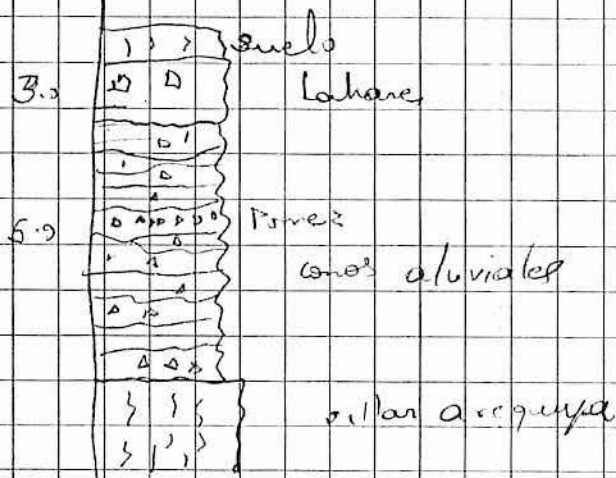 suelo
3.0 Lahares
5.0 Pomez
conos aluviales
sillar arequipa